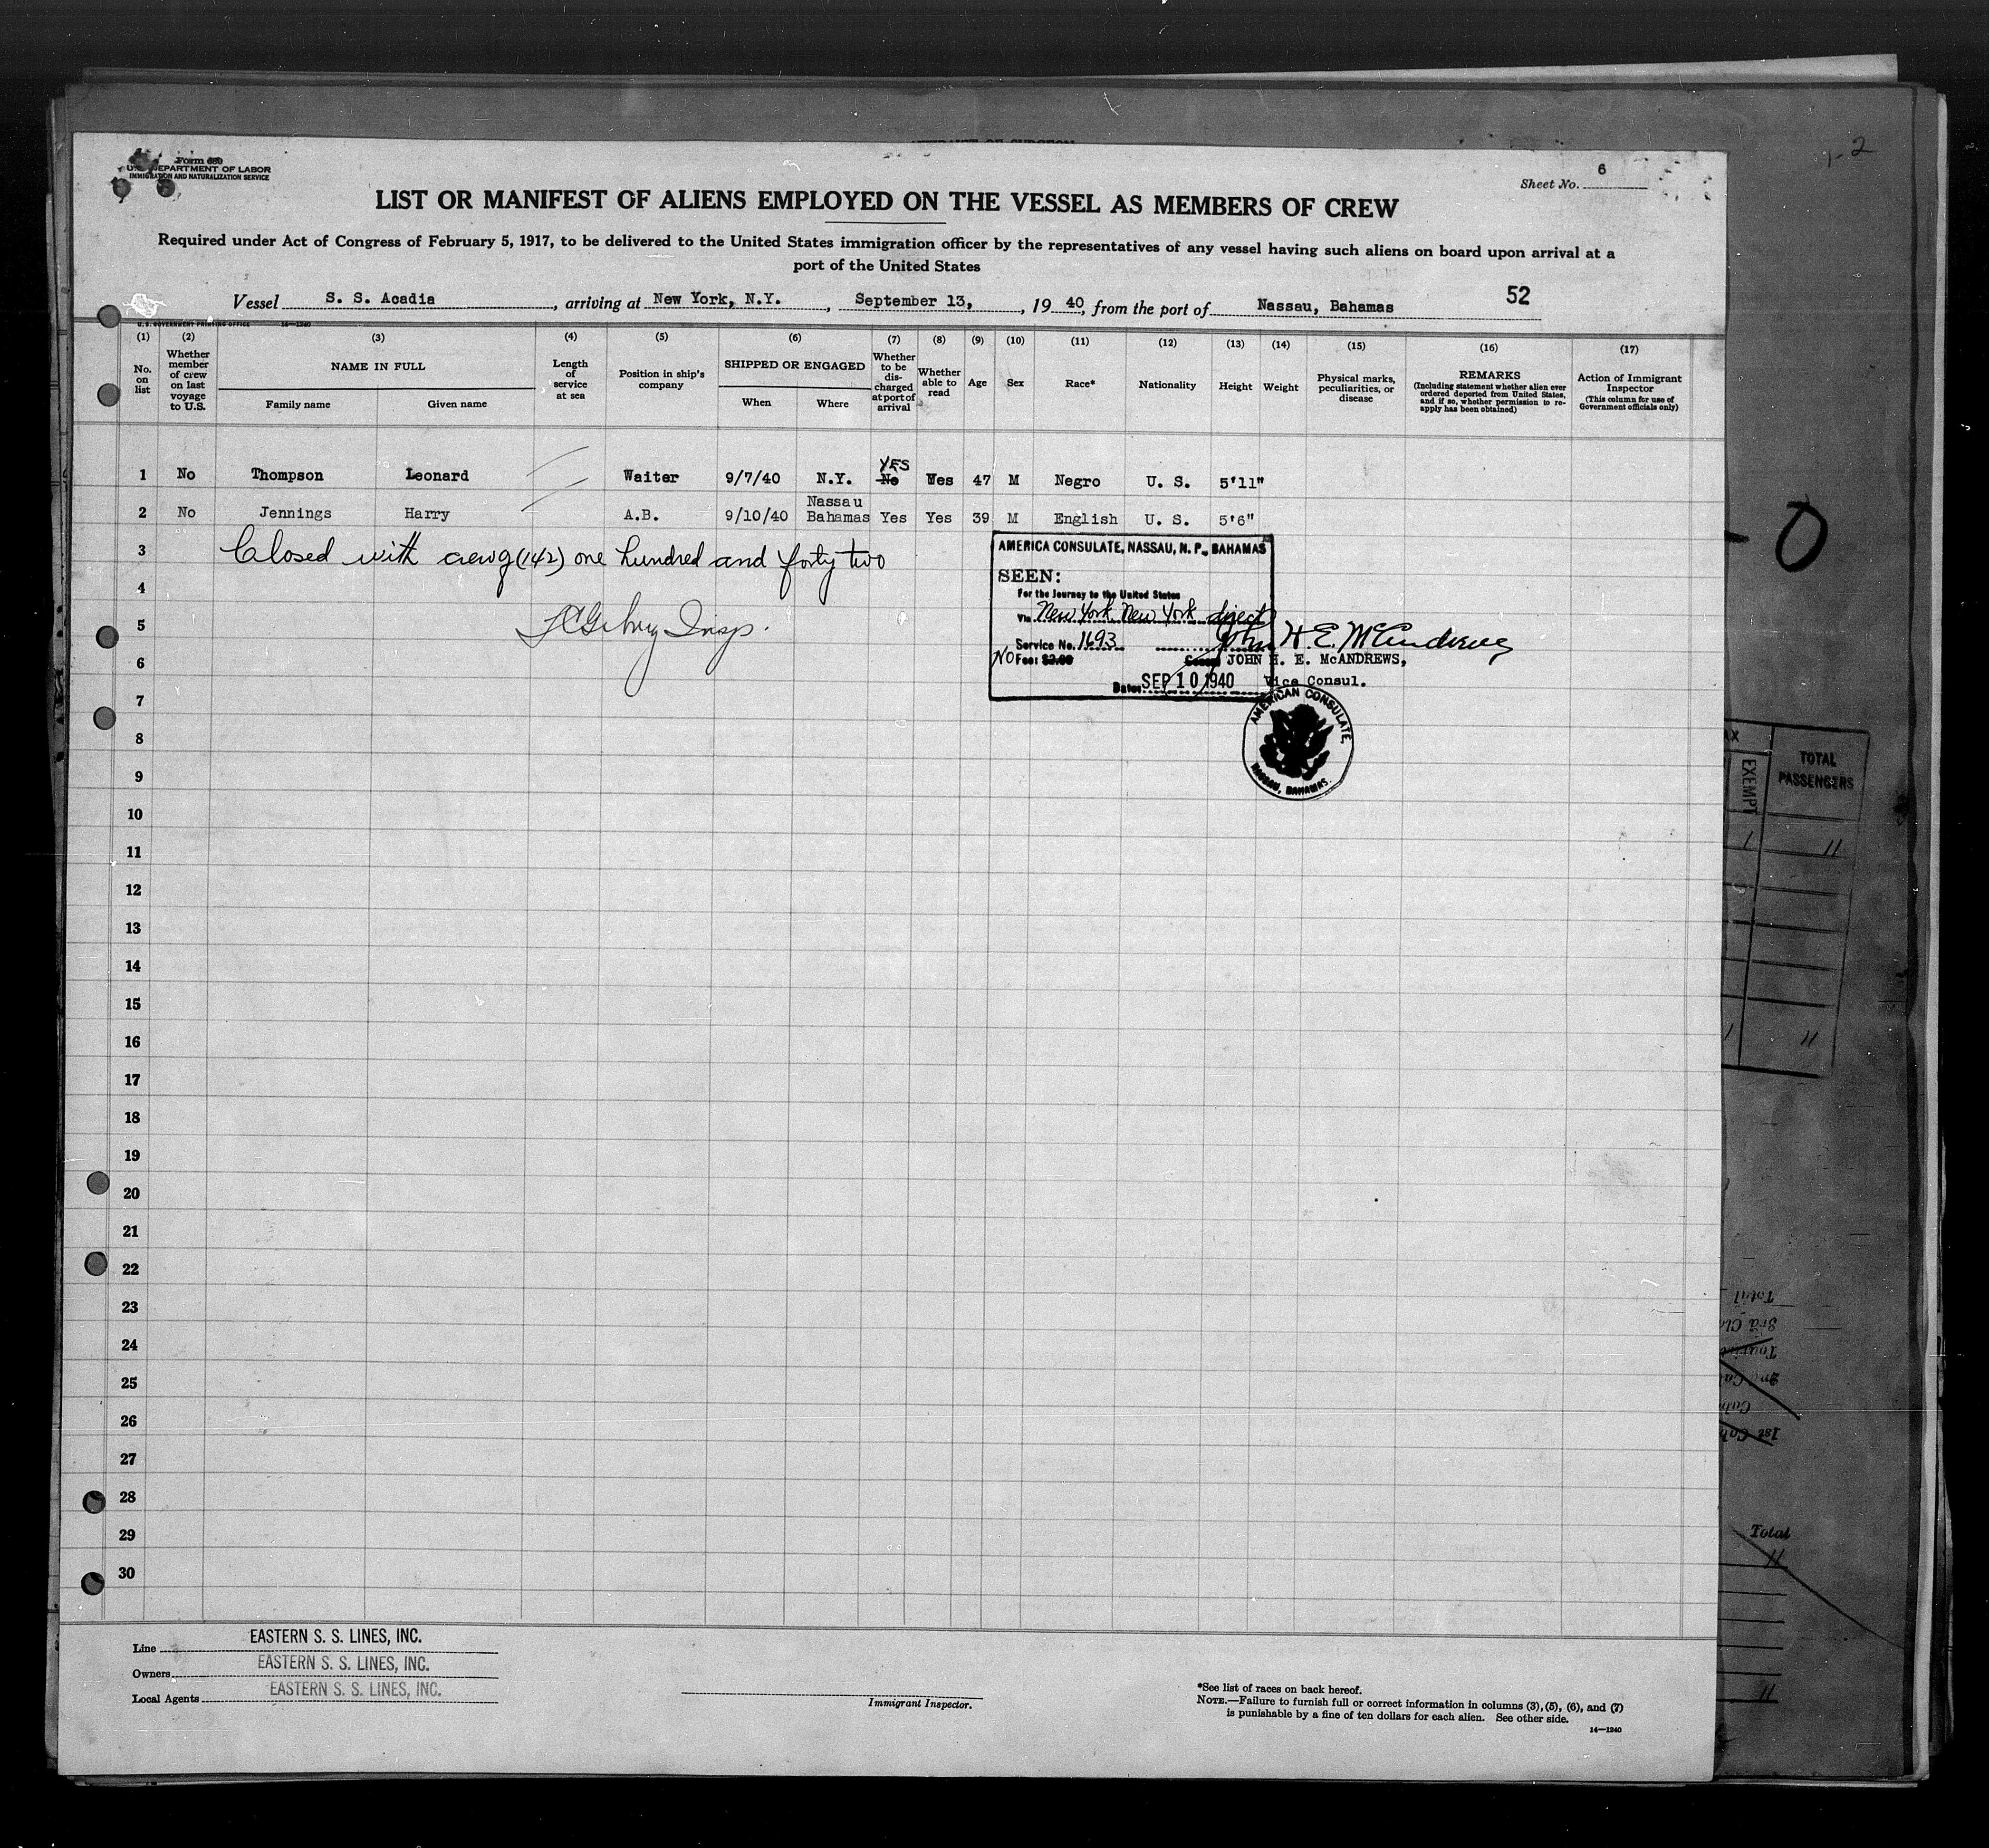 Form 680
U.S. DEPARTMENT OF LABOR
IMMIGRATION AND NATURALIZATION SERVICE
Sheet No. 6
LIST OR MANIFEST OF ALIENS EMPLOYED ON THE VESSEL AS MEMBERS OF CREW
Required under Act of Congress of February 5, 1917, to be delivered to the United States immigration officer by the representatives of any vessel having such aliens on board upon arrival at a
port of the United States
Vessel S. S. Acadia, arriving at New York, N.Y., September 13, 1940, from the port of Nassau, Bahamas 52
U.S. GOVERNMENT PRINTING OFFICE 14—1240
(1) (2) (3) (4) (5) (6) (7) (8) (9) (10) (11) (12) (13) (14) (15) (16) (17)
No. on list
Whether member of crew on last voyage to U.S.
NAME IN FULL
Family name Given name
Length of service at sea
Position in ship's company
SHIPPED OR ENGAGED
When Where
Whether to be discharged at port of arrival
Whether able to read
Age
Sex
Race*
Nationality
Height
Weight
Physical marks, peculiarities, or disease
REMARKS
(Including statement whether alien ever ordered deported from United States, and if so, whether permission to re-apply has been obtained)
Action of Immigrant Inspector
(This column for use of Government officials only)
1 No Thompson Leonard Waiter 9/7/40 N.Y. No YES Yes 47 M Negro U. S. 5'11"
2 No Jennings Harry A.B. 9/10/40 Nassau Bahamas Yes Yes 39 M English U. S. 5'6"
3 Closed with crew of (142) one hundred and forty two
4
5 Insp.
6
7
8
9
10
11
12
13
14
15
16
17
18
19
20
21
22
23
24
25
26
27
28
29
30
AMERICA CONSULATE, NASSAU, N. P., BAHAMAS
SEEN:
For the Journey to the United States
Via New York, New York direct
Service No. 1693
John H. E. McAndrews
No Fee: $2.00
Consul JOHN H. E. McANDREWS,
Date: SEP 10 1940 Vice Consul.
AMERICAN CONSULATE,
NASSAU, BAHAMAS.
Line EASTERN S. S. LINES, INC.
Owners EASTERN S. S. LINES, INC.
Local Agents EASTERN S. S. LINES, INC.
Immigrant Inspector.
*See list of races on back hereof.
NOTE.—Failure to furnish full or correct information in columns (3), (5), (6), and (7)
is punishable by a fine of ten dollars for each alien. See other side.
14—1240
EXEMPT
TOTAL
PASSENGERS
1 11
1 11
0
Total
3rd
Total
11
11